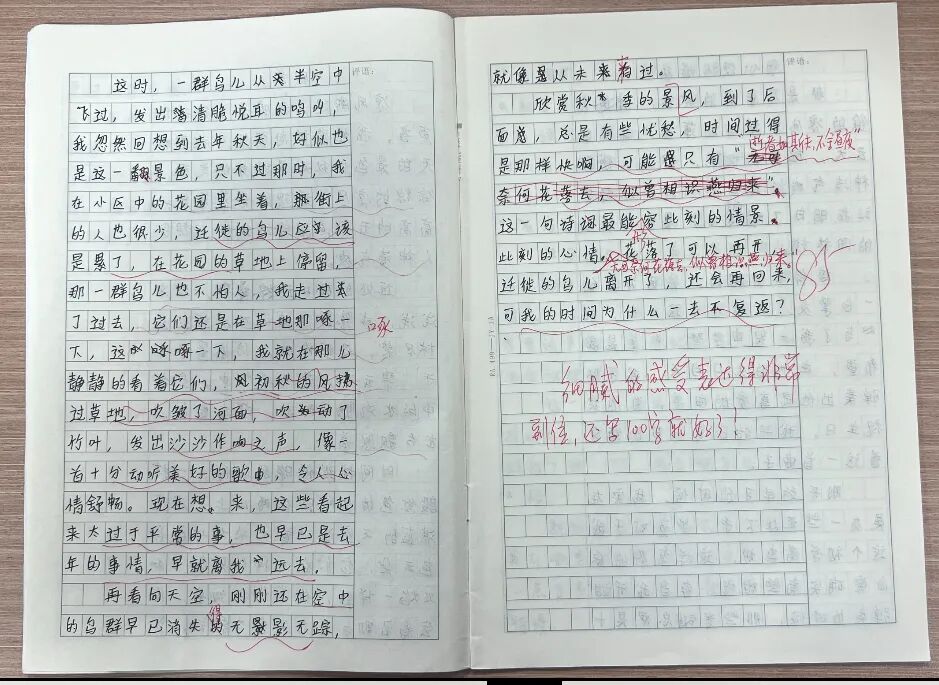 评语：
这时，一群鸟儿从半空中
飞过，发出清脆悦耳的鸣叫，
我忽然回想到去年秋天，好似也
是这一翻景色，只不过那时，我
在小区中的花园里坐着，街上
的人也很少，迁徙的鸟儿应该
是累了，在花园的草地上停留，
那一群鸟儿也不怕人，我走过
了过去，它们还是在草地那啄一
啄
下，这啄一下，我就在那儿
静静的看着它们，初秋的风拂
过草地，吹皱了河面，吹动了
竹叶，发出沙沙作响之声，像一
首十分动听美好的歌曲，令人心
情舒畅。现在想来，这些看起
来太过于平常的事，也早已是去
年的事情，早就离我远去。
再看向天空，刚刚还在空中
得
的鸟群早已消失的无影无踪，
评语：
就像是从未来过。
欣赏秋季的景风，到了后
面总是有些忧愁，时间过得
是那样快啊，可能只有“
逝者如斯夫，不舍昼夜
奈何花落去，似曾相识燕归来”
这一句诗词最能容此刻的情景
此刻的心情。花落了可以再开
无可奈何花落去，似曾相识燕归来。
迁徙的鸟儿离开了，还会再回来，
可我的时间为什么一去不复返？
85
细腻的感受表达得非常
到位，还写100字就好了！